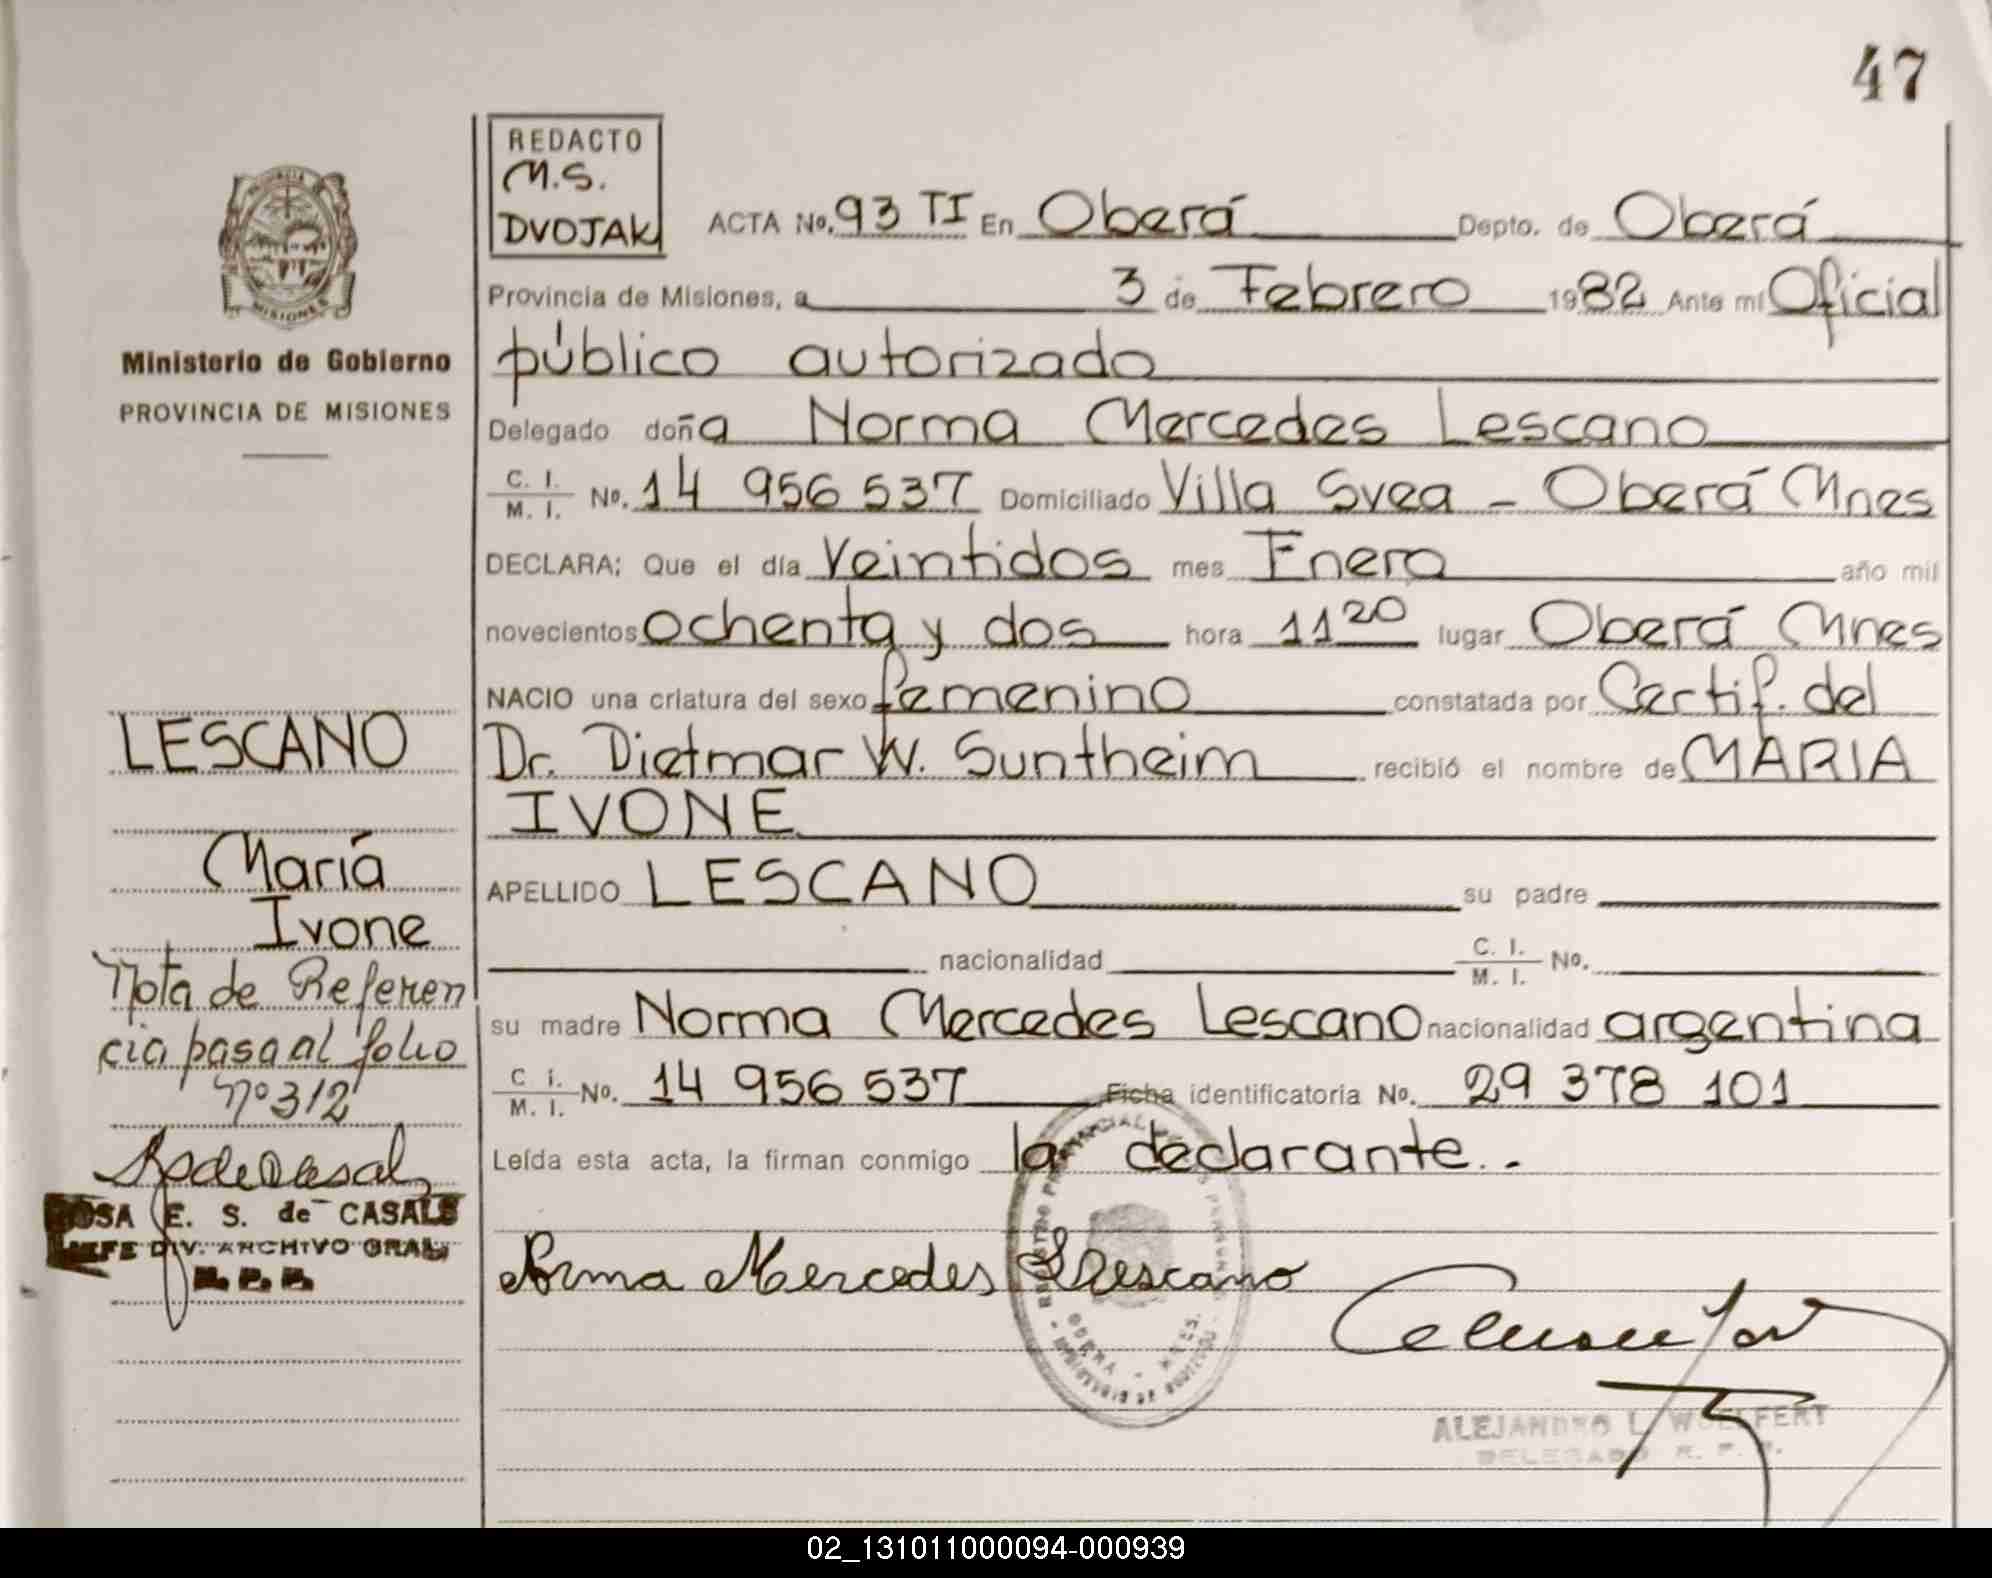 47
REDACTO
M.S.
DVOJAK
ACTA No. 93 TI En Oberá Depto. de Oberá
Provincia de Misiones, a 3 de Febrero 1982 Ante mi Oficial
público autorizado
Delegado doña Norma Mercedes Lescano
C. I. / M. I. No. 14 956 537 Domiciliado Villa Svea - Oberá Mnes
DECLARA: Que el día Veintidos mes Enero año mil
novecientos ochenta y dos hora 11 20 lugar Oberá Mnes
NACIO una criatura del sexo femenino constatada por Certif. del
Dr. Dietmar W. Suntheim recibió el nombre de MARIA
IVONE
APELLIDO LESCANO su padre
nacionalidad C. I. / M. I. No.
su madre Norma Mercedes Lescano nacionalidad argentina
C I. / M. I. No. 14 956 537 Ficha identificatoria No. 29 378 101
Leída esta acta, la firman conmigo la declarante..
Norma Mercedes Lescano
ALEJANDRO L. WOLFERT
DELEGADO R. P. P.
PROVINCIA DE
MISIONES
Ministerio de Gobierno
PROVINCIA DE MISIONES
LESCANO
Mariá
Ivone
Nota de Referen
cia pasa al folio
Nº 312
ROSA E. S. de CASALS
JEFE DIV. ARCHIVO GRAL.
R. P. P.
OBERA - MNES.
02_131011000094-000939